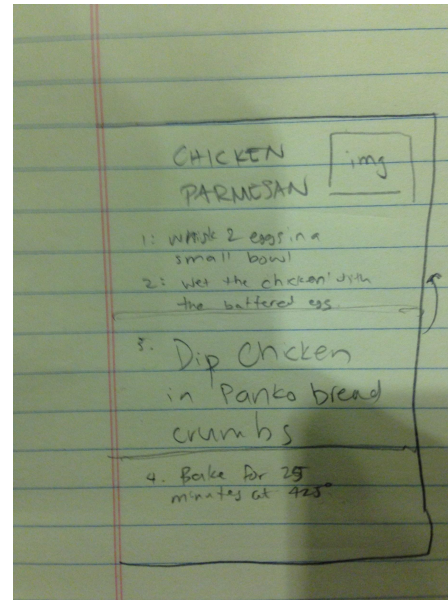 CHICKEN
PARMESAN
img
1: Whisk 2 eggs in a
small bowl
2: wet the chicken with
the battered egg
3. Dip Chicken
in Panko bread
crumbs
4. Bake for 25
minutes at 425°